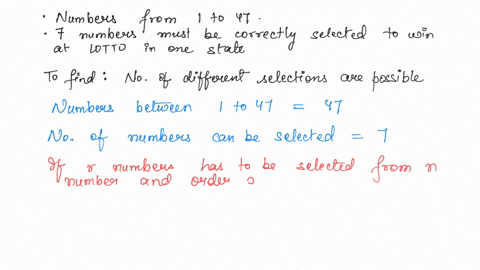 · Numbers from 1 to 47.
· 7 numbers must be correctly selected to win
at LOTTO in one state
To find : No. of different selections are possible
Numbers between 1 to 47 = 47
No. of numbers can be selected = 7
If r numbers has to be selected from n
number and order